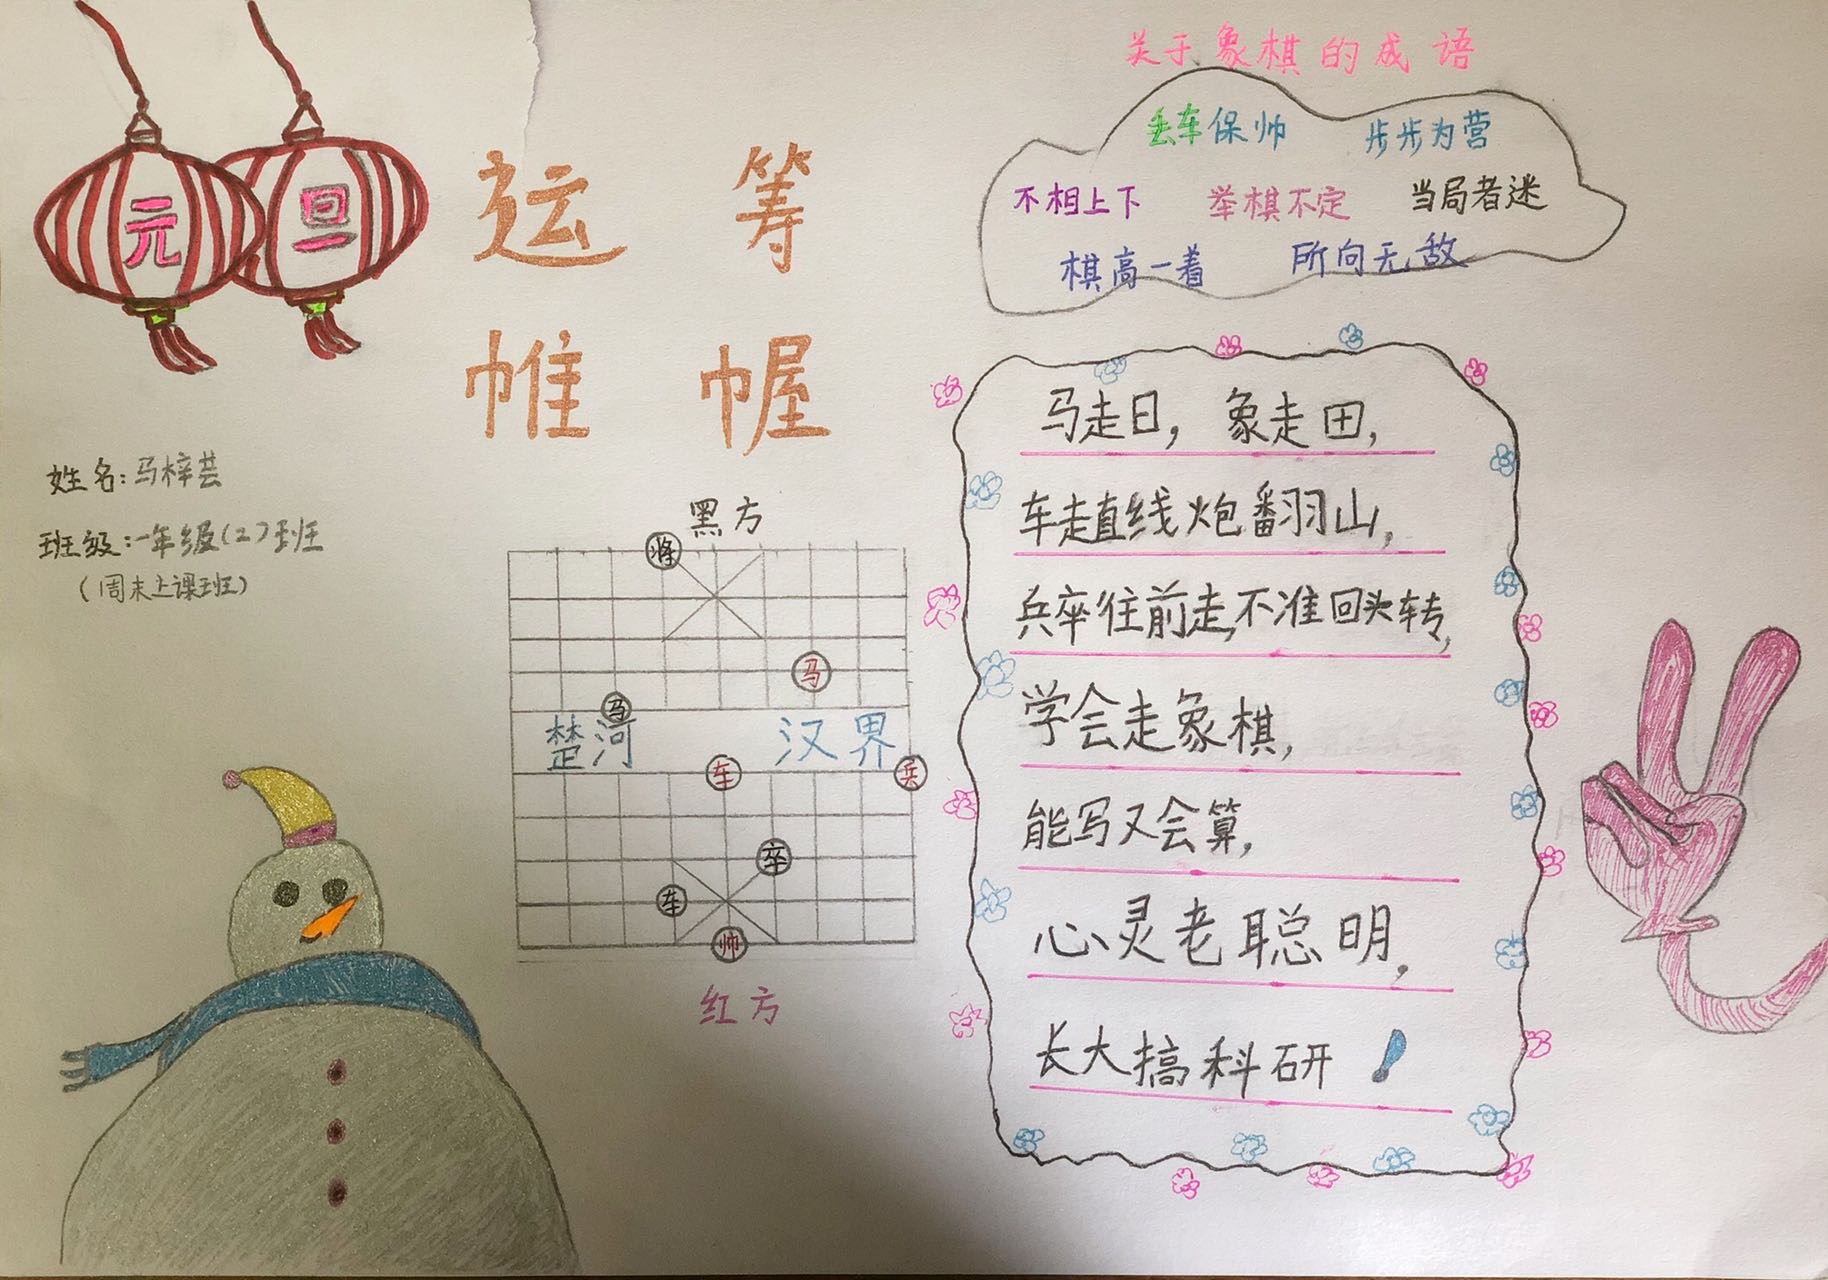 元旦
运筹
帷幄
姓名:马梓芸
班级:一年级(2)班
(周末上课班)
黑方
将
马
马
楚河 汉界
车 兵
卒
车
帅
红方
关于象棋的成语
丢车保帅 步步为营
不相上下 举棋不定 当局者迷
棋高一着 所向无敌
马走日，象走田，
车走直线炮翻羽山，
兵卒往前走,不准回头转，
学会走象棋，
能写又会算，
心灵老聪明，
长大搞科研！